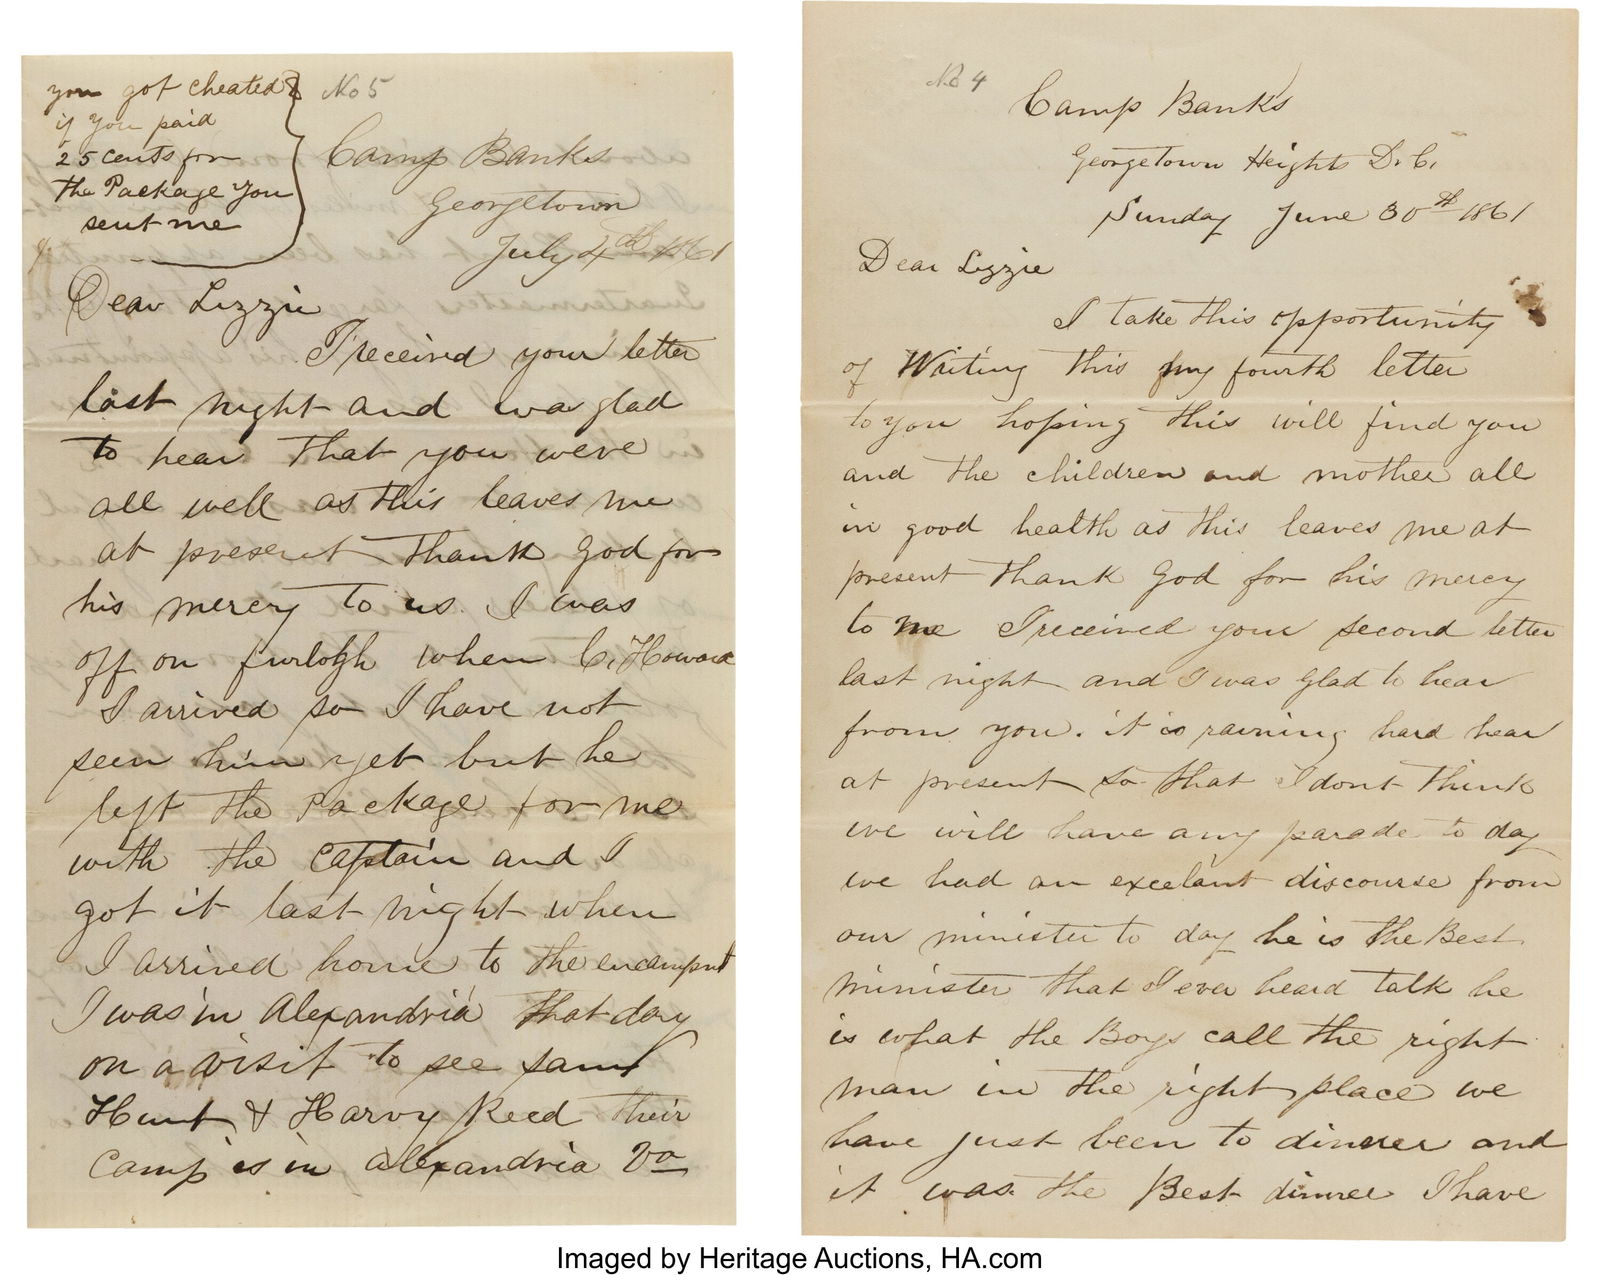 you got cheated
if you paid
25 cents for
the Package You
sent me
No 5
Camp Banks
Georgetown
July 4th 1861
Dear Lizzie
I received your letter
last night and was glad
to hear that you were
all well as this leaves me
at present thank God for
his mercy to us. I was
off on furlogh when C. Howard
I arrived so I have not
seen him yet but he
left the Package for me
with the Captain and I
got it last night when
I arrived home to the encampmt
I was in Alexandria that day
on a visit to see Saml
Hunt & Harvy Reed their
Camp is in Alexandria Va
No 4
Camp Banks
Georgetown Heights D. C.
Sunday June 30th 1861
Dear Lizzie
I take this opportunity
of Writing this my fourth letter
to you hoping this will find you
and the children and mother all
in good health as this leaves me at
present thank God for his mercy
to me I received your second letter
last night and I was glad to hear
from you. it is raining hard hear
at present so that I dont think
we will have any parade to day
we had an excelant discourse from
our minister to day he is the Best
minister that I ever heard talk he
is what the Boys call the right
man in the right place we
have just been to dinner and
it was the Best dinner I have
Imaged by Heritage Auctions, HA.com